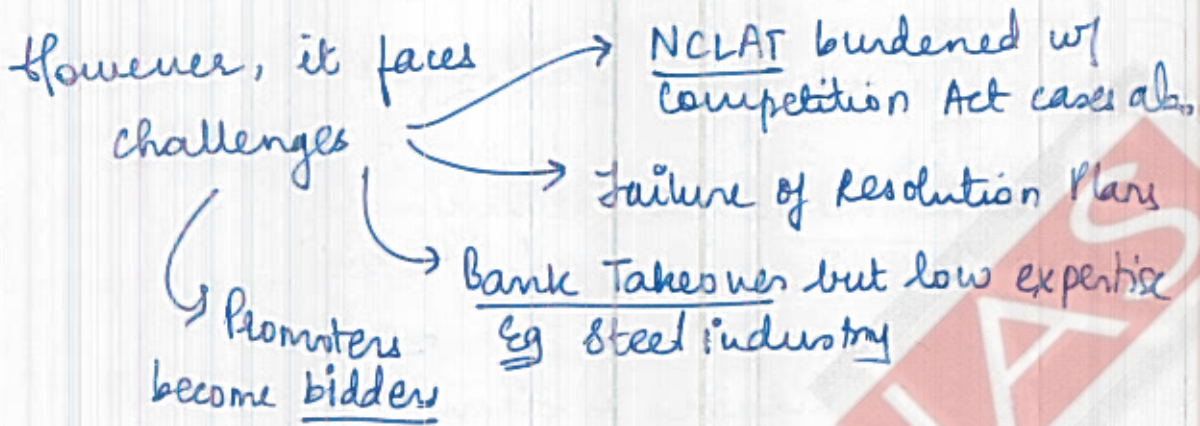 However, it faces
challenges
NCLAT burdened w/
Competition Act cases also
Failure of Resolution Plans
Bank Takeover but low expertise
Eg Steel industry
Promoters
become bidders
IAS